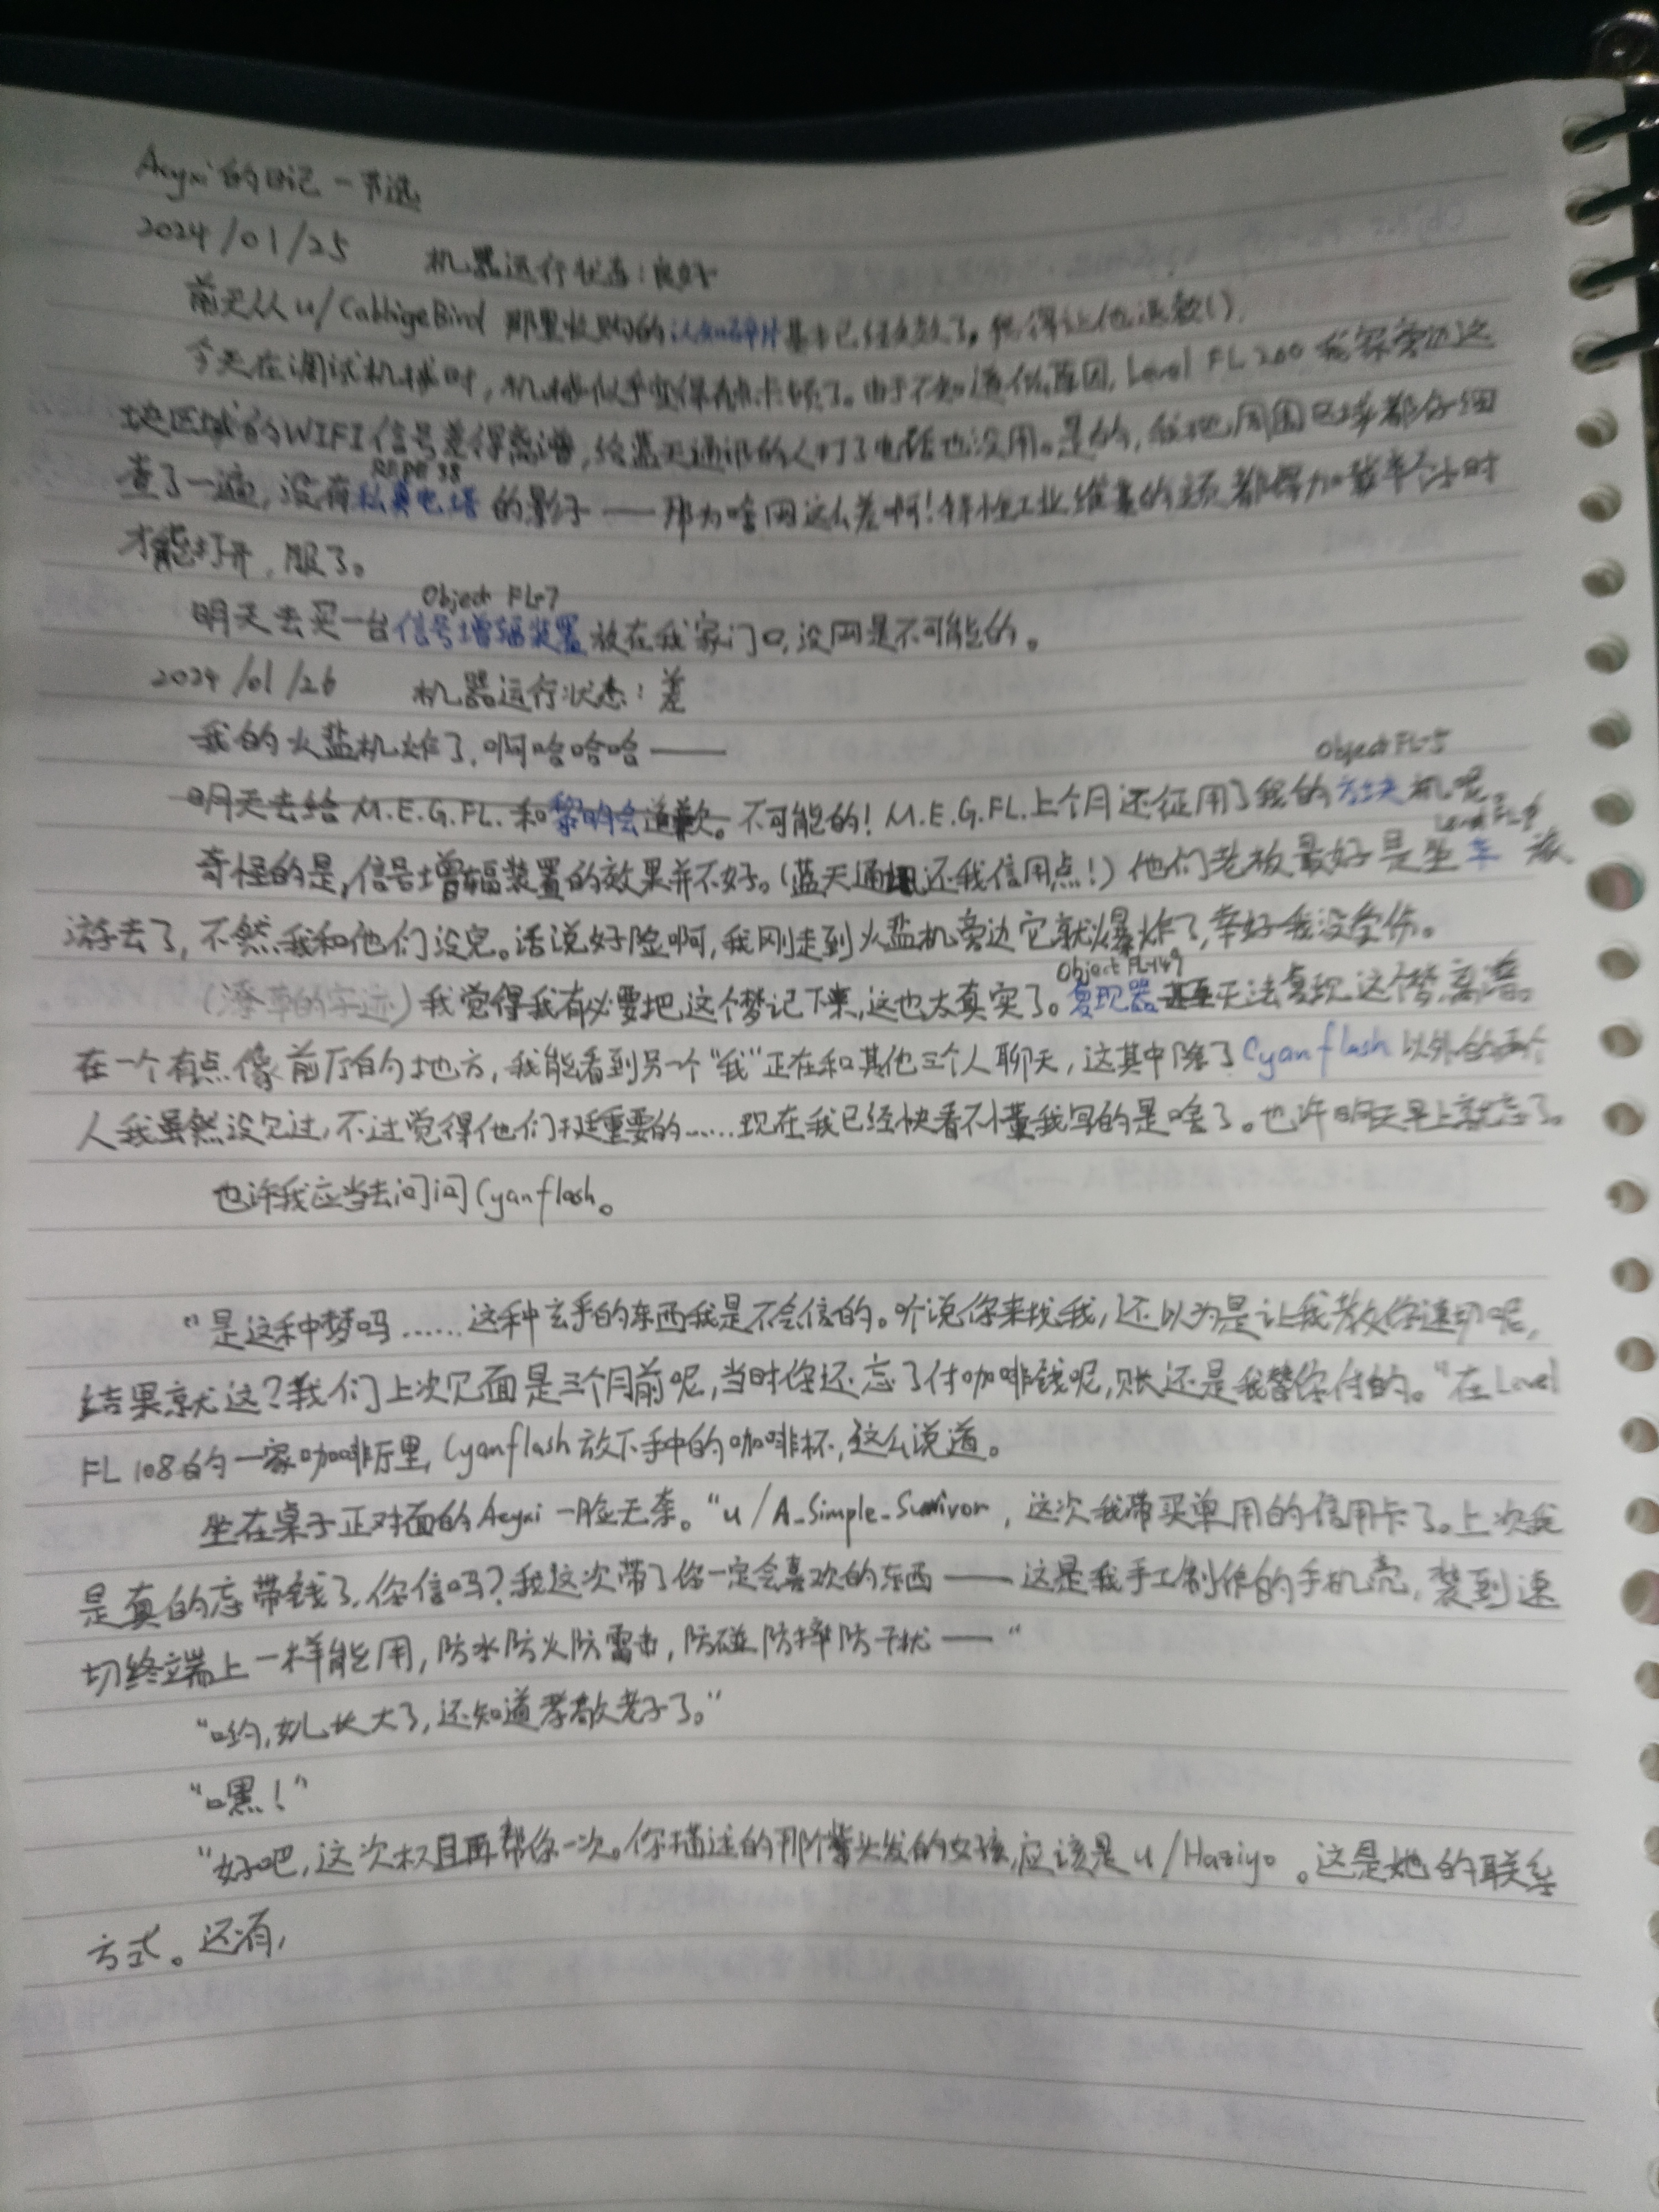 Aeyxi的日记 一 节选
2024/01/25 机器运行状态:良好
前天从u/CabbigeBird 那里收购的认知碎片基本已经失效了。我得让他退款()
今天在调试机械时,机械似乎变得有点卡顿了。由于不知道什么原因,Level FL 200 我家旁边这
块区域的WIFI信号差得离谱,给蓝天通讯的人打了电话也没用。是的,我把周围区域都仔细
查了一遍,没有私真电塔的影子——那为啥网这么差啊!特性工业维基的主页都得加载半个小时
才能打开,服了。
Object FL-7
明天去买一台信号增辐装置放在我家门口,没网是不可能的。
2024/01/26 机器运行状态:差
我的火盐机炸了,啊哈哈哈——
Object FL-5
明天去给M.E.G.FL.和黎明会道歉。不可能的!M.E.G.FL.上个月还征用了我的方块机呢。
奇怪的是,信号增辐装置的效果并不好。(蓝天通讯还我信用点!)他们老板最好是坐车旅
游去了,不然我和他们没完。话说好险啊,我刚走到火盐机旁边它就爆炸了,幸好我没受伤。
Object FL-149
(潦草的字迹)我觉得我有必要把这个梦记下来,这也太真实了。复现器甚至无法复现这个梦,离谱。
在一个有点像前厅的地方,我能看到另一个“我”正在和其他三个人聊天,这其中除了Cyanflash以外的两个
人我虽然没见过,不过觉得他们挺重要的……现在我已经快看不懂我写的是啥了。也许明天早上就忘了。
也许我应当去问问Cyanflash。
“是这种梦吗……这种玄乎的东西我是不会信的。听说你来找我,还以为是让我教你速切呢,
结果就这?我们上次见面是三个月前呢,当时你还忘了付咖啡钱呢,账还是我替你付的。”在Level
FL 108的一家咖啡厅里,Cyanflash放下手中的咖啡杯,这么说道。
坐在桌子正对面的Aeyxi一脸无奈。“u/A_Simple_Survivor,这次我带买单用的信用卡了。上次我
是真的忘带钱了,你信吗?我这次带了你一定会喜欢的东西——这是我手工制作的手机壳,装到速
切终端上一样能用,防水防火防雷击,防碰防摔防干扰——”
“哟,女儿长大了,还知道孝敬老子了。”
“嘿!”
“好吧,这次权且再帮你一次。你描述的那个紫头发的女孩,应该是u/Haziyo。这是她的联系
方式。还有,